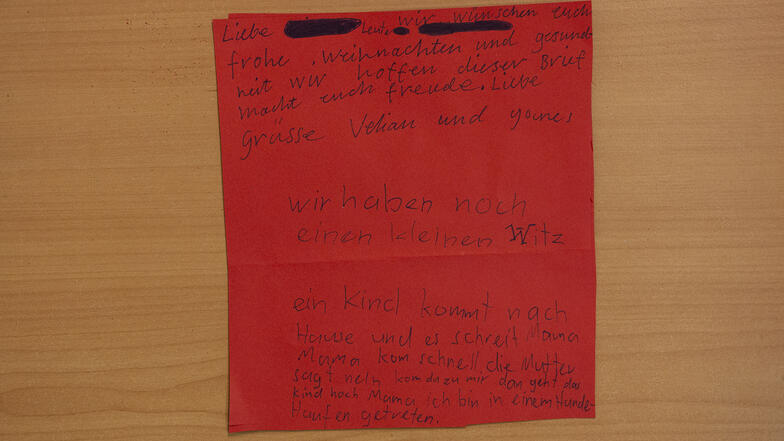 Liebe Leute wir wünschen euch
frohe Weihnachten und gesund-
heit wir hoffen dieser Brief
macht euch freude. Liebe
Grüsse Velian und younes
wir haben noch
einen kleinen Witz
ein Kind kommt nach
Hause und es schreit Mama
Mama kom schnell die Mutter
sagt nein kom du zu mir dan geht das
kind hoch Mama ich bin in einem Hunde-
Haufen getreten.